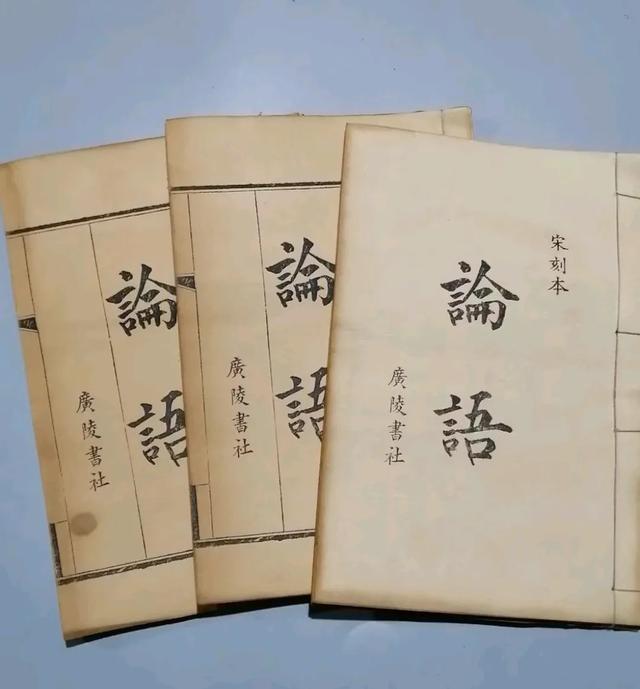 宋刻本
論語
廣陵書社
論語
廣陵書社
論語
廣陵書社